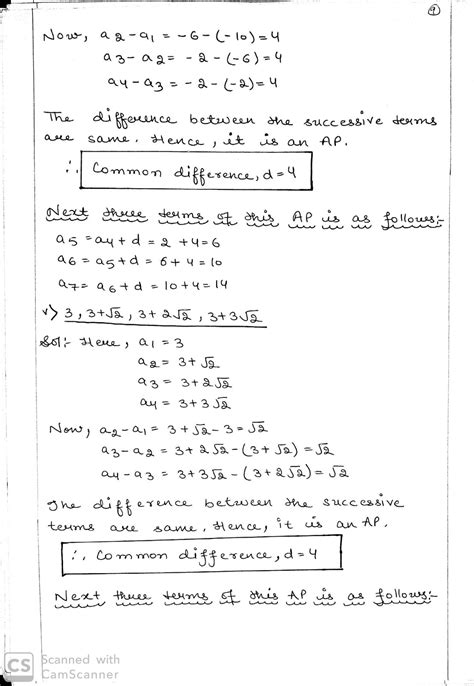 9
Now, a2-a1 = -6-(-10)=4
a3-a2= -2-(-6)=4
a4-a3 = -2-(-2)=4
The difference between the successive terms
are same. Hence, it is an AP.
∴ Common difference, d=4
Next three terms of this AP is as follows:-
a5 = a4+d = 2 +4=6
a6 = a5+d = 6+4=10
a7= a6+d = 10+4=14
v) 3, 3+√2, 3+2√2, 3+3√2
Sol:- Here, a1 = 3
a2 = 3+√2
a3 = 3+2√2
a4 = 3+3√2
Now, a2-a1 = 3+√2-3=√2
a3-a2 = 3+2√2-(3+√2)=√2
a4-a3 = 3+3√2-(3+2√2)=√2
The difference between the successive
terms are same. Hence, it is an AP.
∴ Common difference, d=4
Next three terms of this AP is as follows:-
CS Scanned with
CamScanner